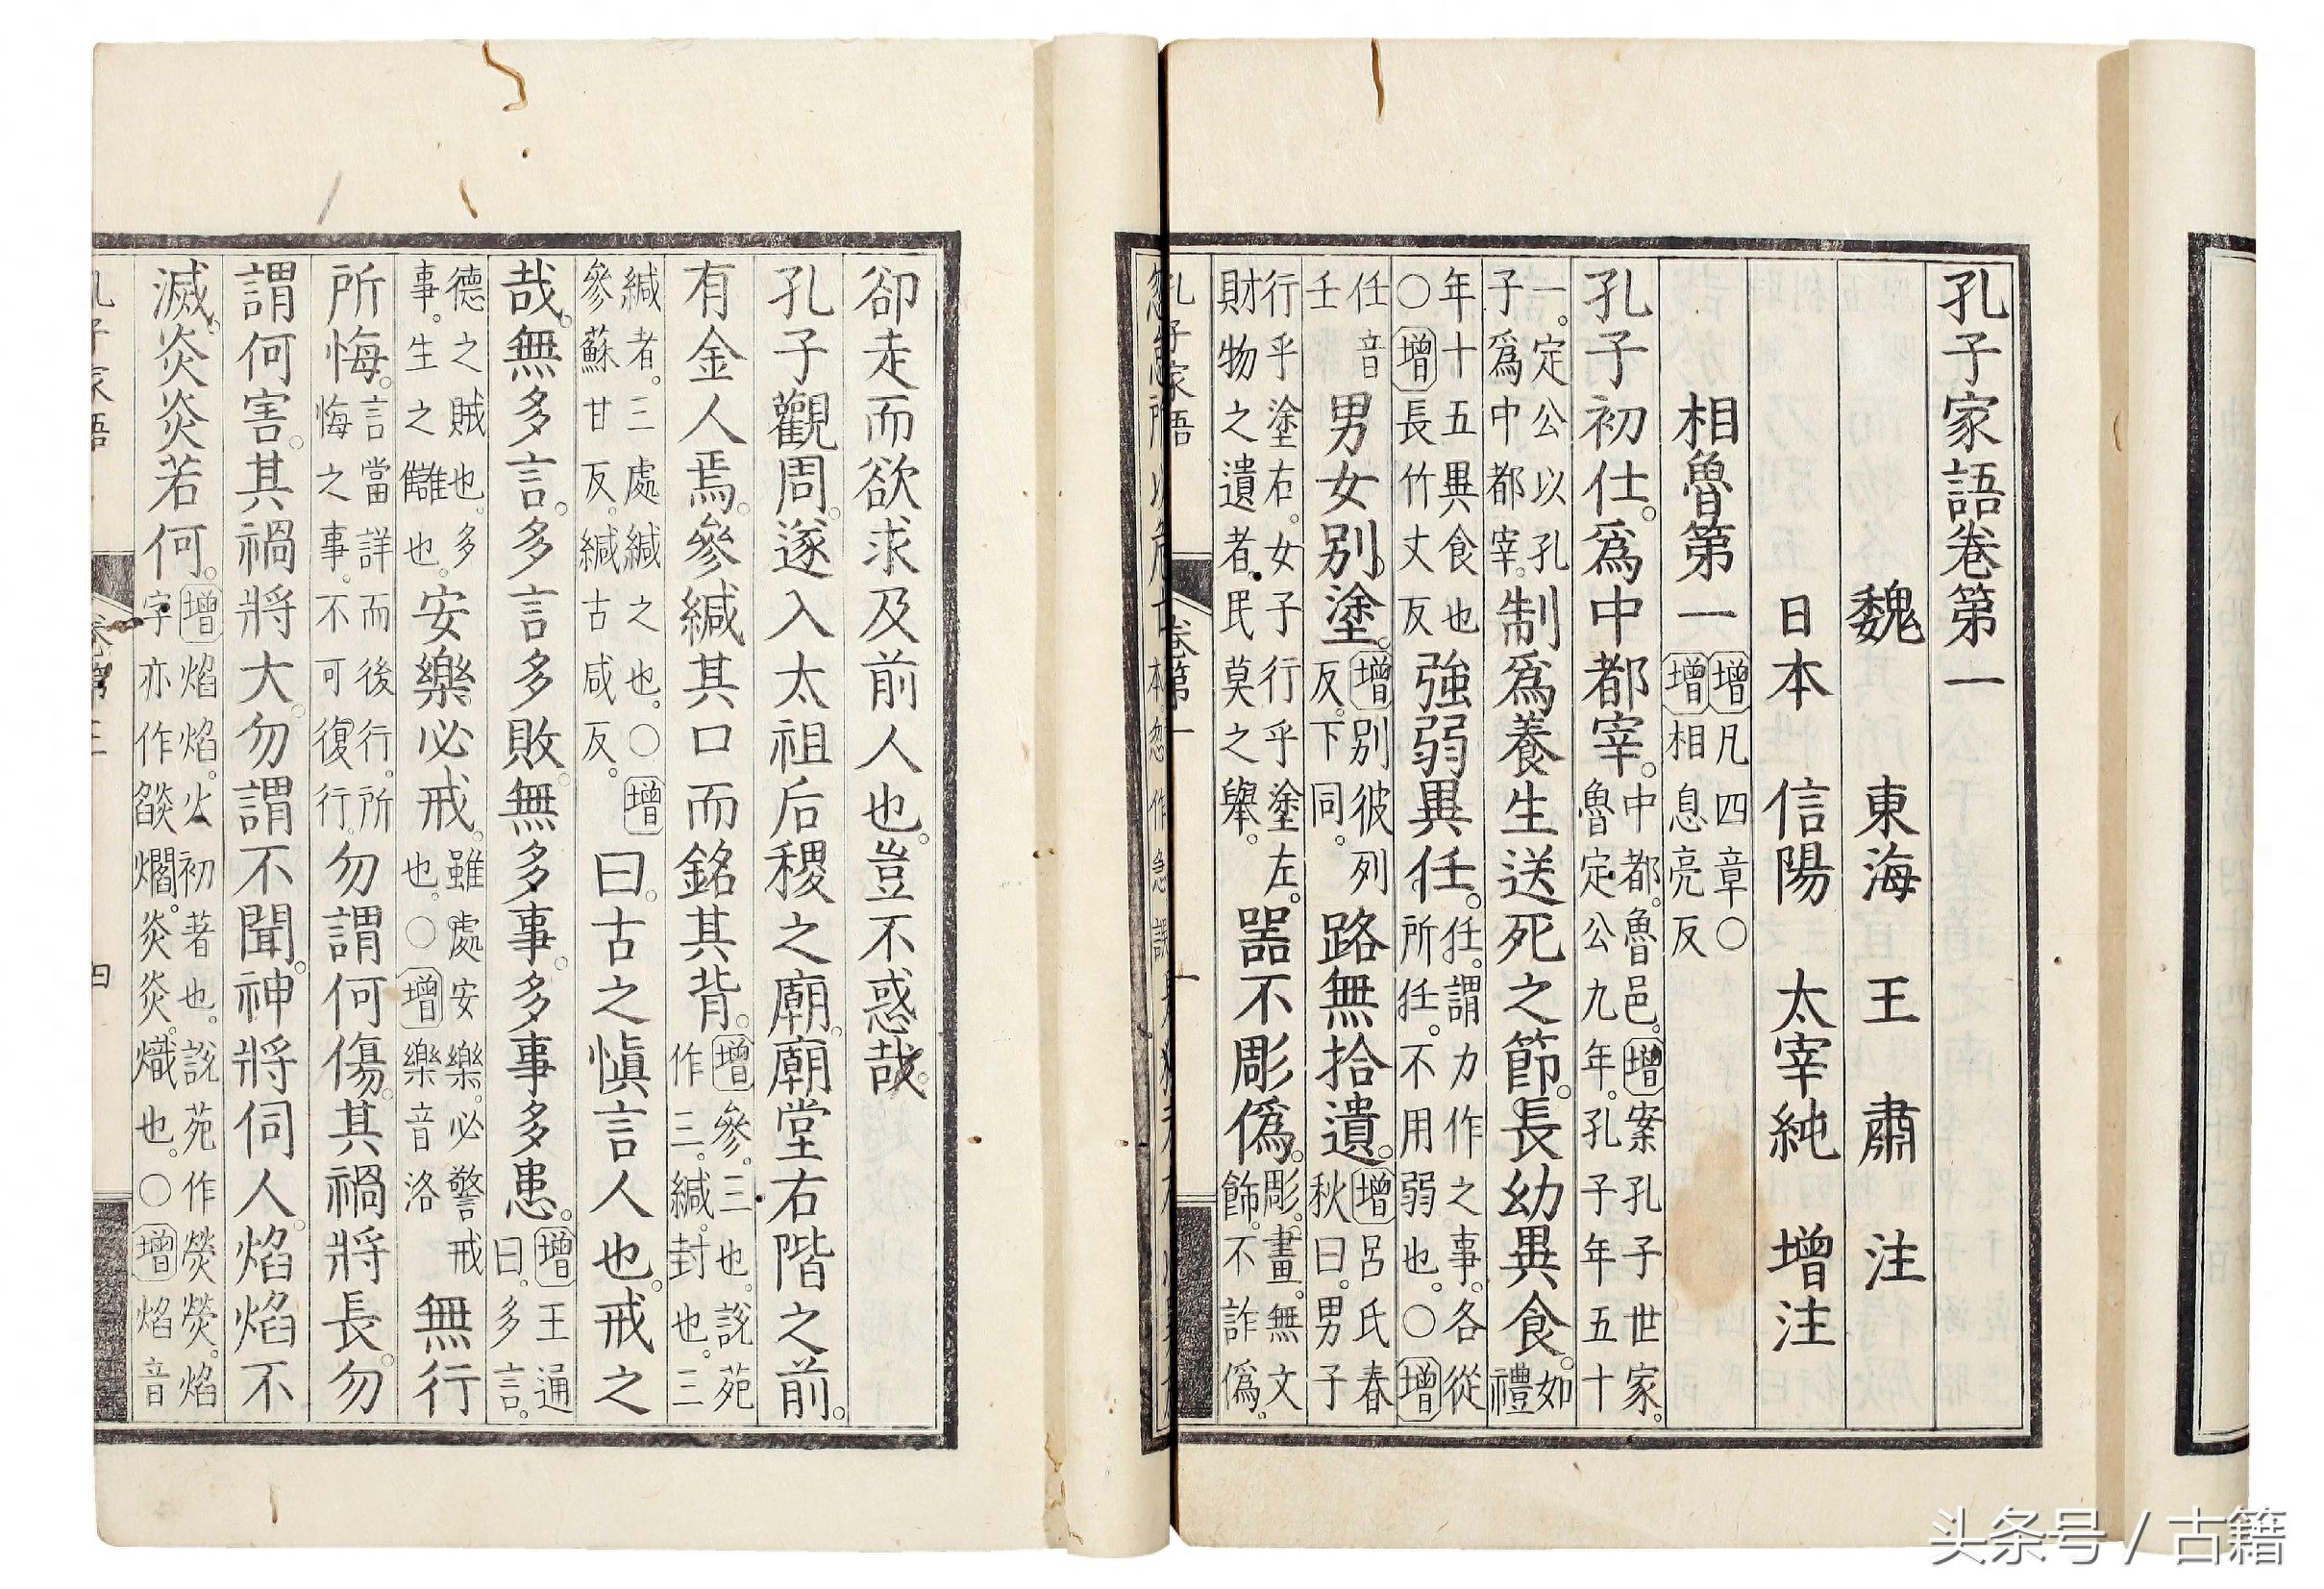 孔子家語卷第一
魏 東海 王肅 注
日本 信陽 太宰純 增注
相魯第一 增凡四章○增相息亮反
孔子初仕。爲中都宰。中都。魯邑。增案孔子世家。魯定公九年。孔子年五十
一。定公以孔子爲中都宰。制爲養生送死之節。長幼異食。如禮
年十五異食也○增長竹丈反強弱異任。任。謂力作之事。各從所任。不用弱也。○增
任音壬男女別塗。增別彼列反。下同。路無拾遺。增呂氏春秋曰。男子
行乎塗右。女子行乎塗左。財物之遺者。民莫之舉。器不彫僞。彫。畫。無文飾。不詐僞。
孔子家語 卷第一 一
卻走而欲求及前人也。豈不惑哉。
孔子觀周。遂入太祖后稷之廟。廟堂右階之前。
有金人焉。參緘其口而銘其背。增參。三也。說苑作三。緘。封也。三
緘者。三處緘之也。○增參蘇甘反。緘古咸反。曰。古之愼言人也。戒之
哉。無多言。多言多敗。無多事。多事多患。增王通曰。多言。
德之賊也。多事。生之讎也。安樂必戒。雖處安樂。必警戒也。○增樂音洛無行
所悔。言當詳而後行。所悔之事。不可復行。勿謂何傷。其禍將長。勿
謂何害。其禍將大。勿謂不聞。神將伺人。焰焰不
滅。炎炎若何。增焰焰。火初著也。說苑作熒熒。焰字亦作燄爓。炎炎。熾也。○增焰音
孔子家語 卷第三 四
头条号 / 古籍